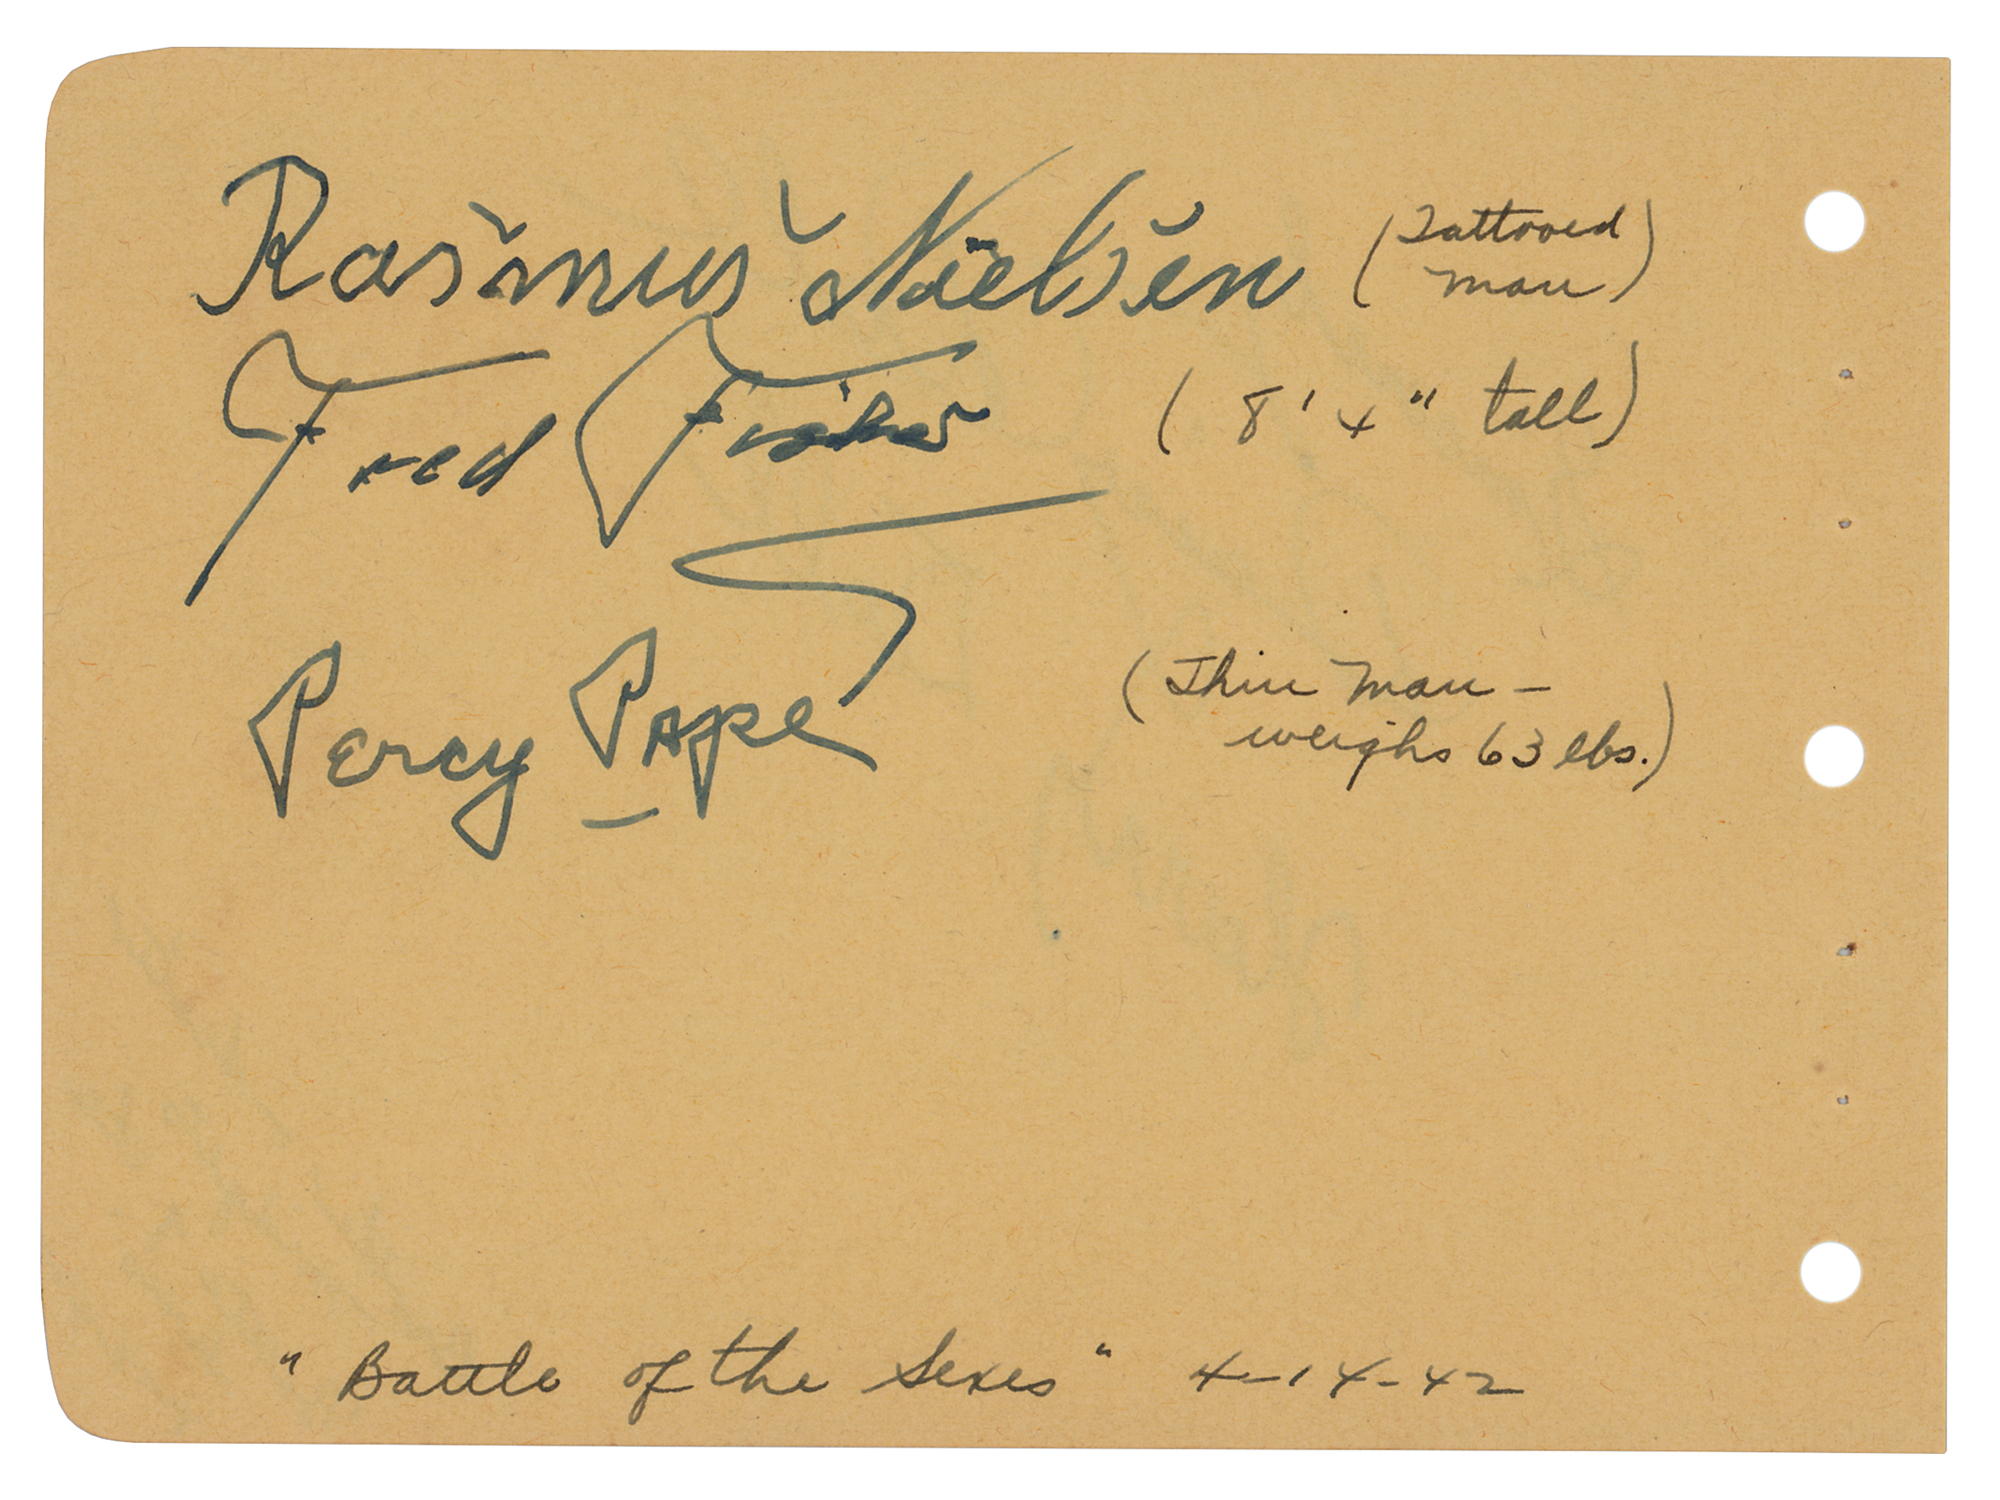 Rasmus Nielsen (Tattooed
man)
Fred Fisher (8' 4" tall)
Percy Pape (Thin Man –
weighs 63 lbs.)
"Battle of the Sexes" 4-14-42